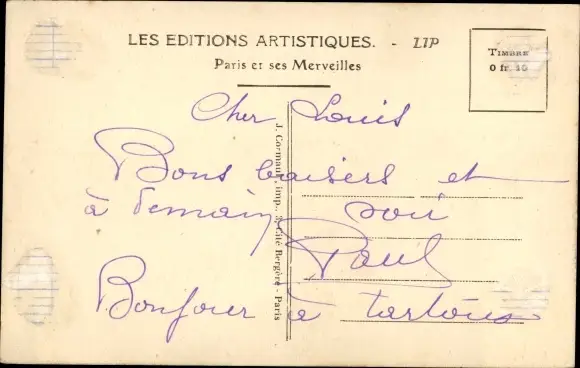 LES EDITIONS ARTISTIQUES. - LIP
Paris et ses Merveilles
TIMBRE
0 fr. 10
Cher Louis
Bons baisers et
à demain soir
Paul
Bonjour à tartous
J. Cormault, imp., 3, Cité Bergère - Paris